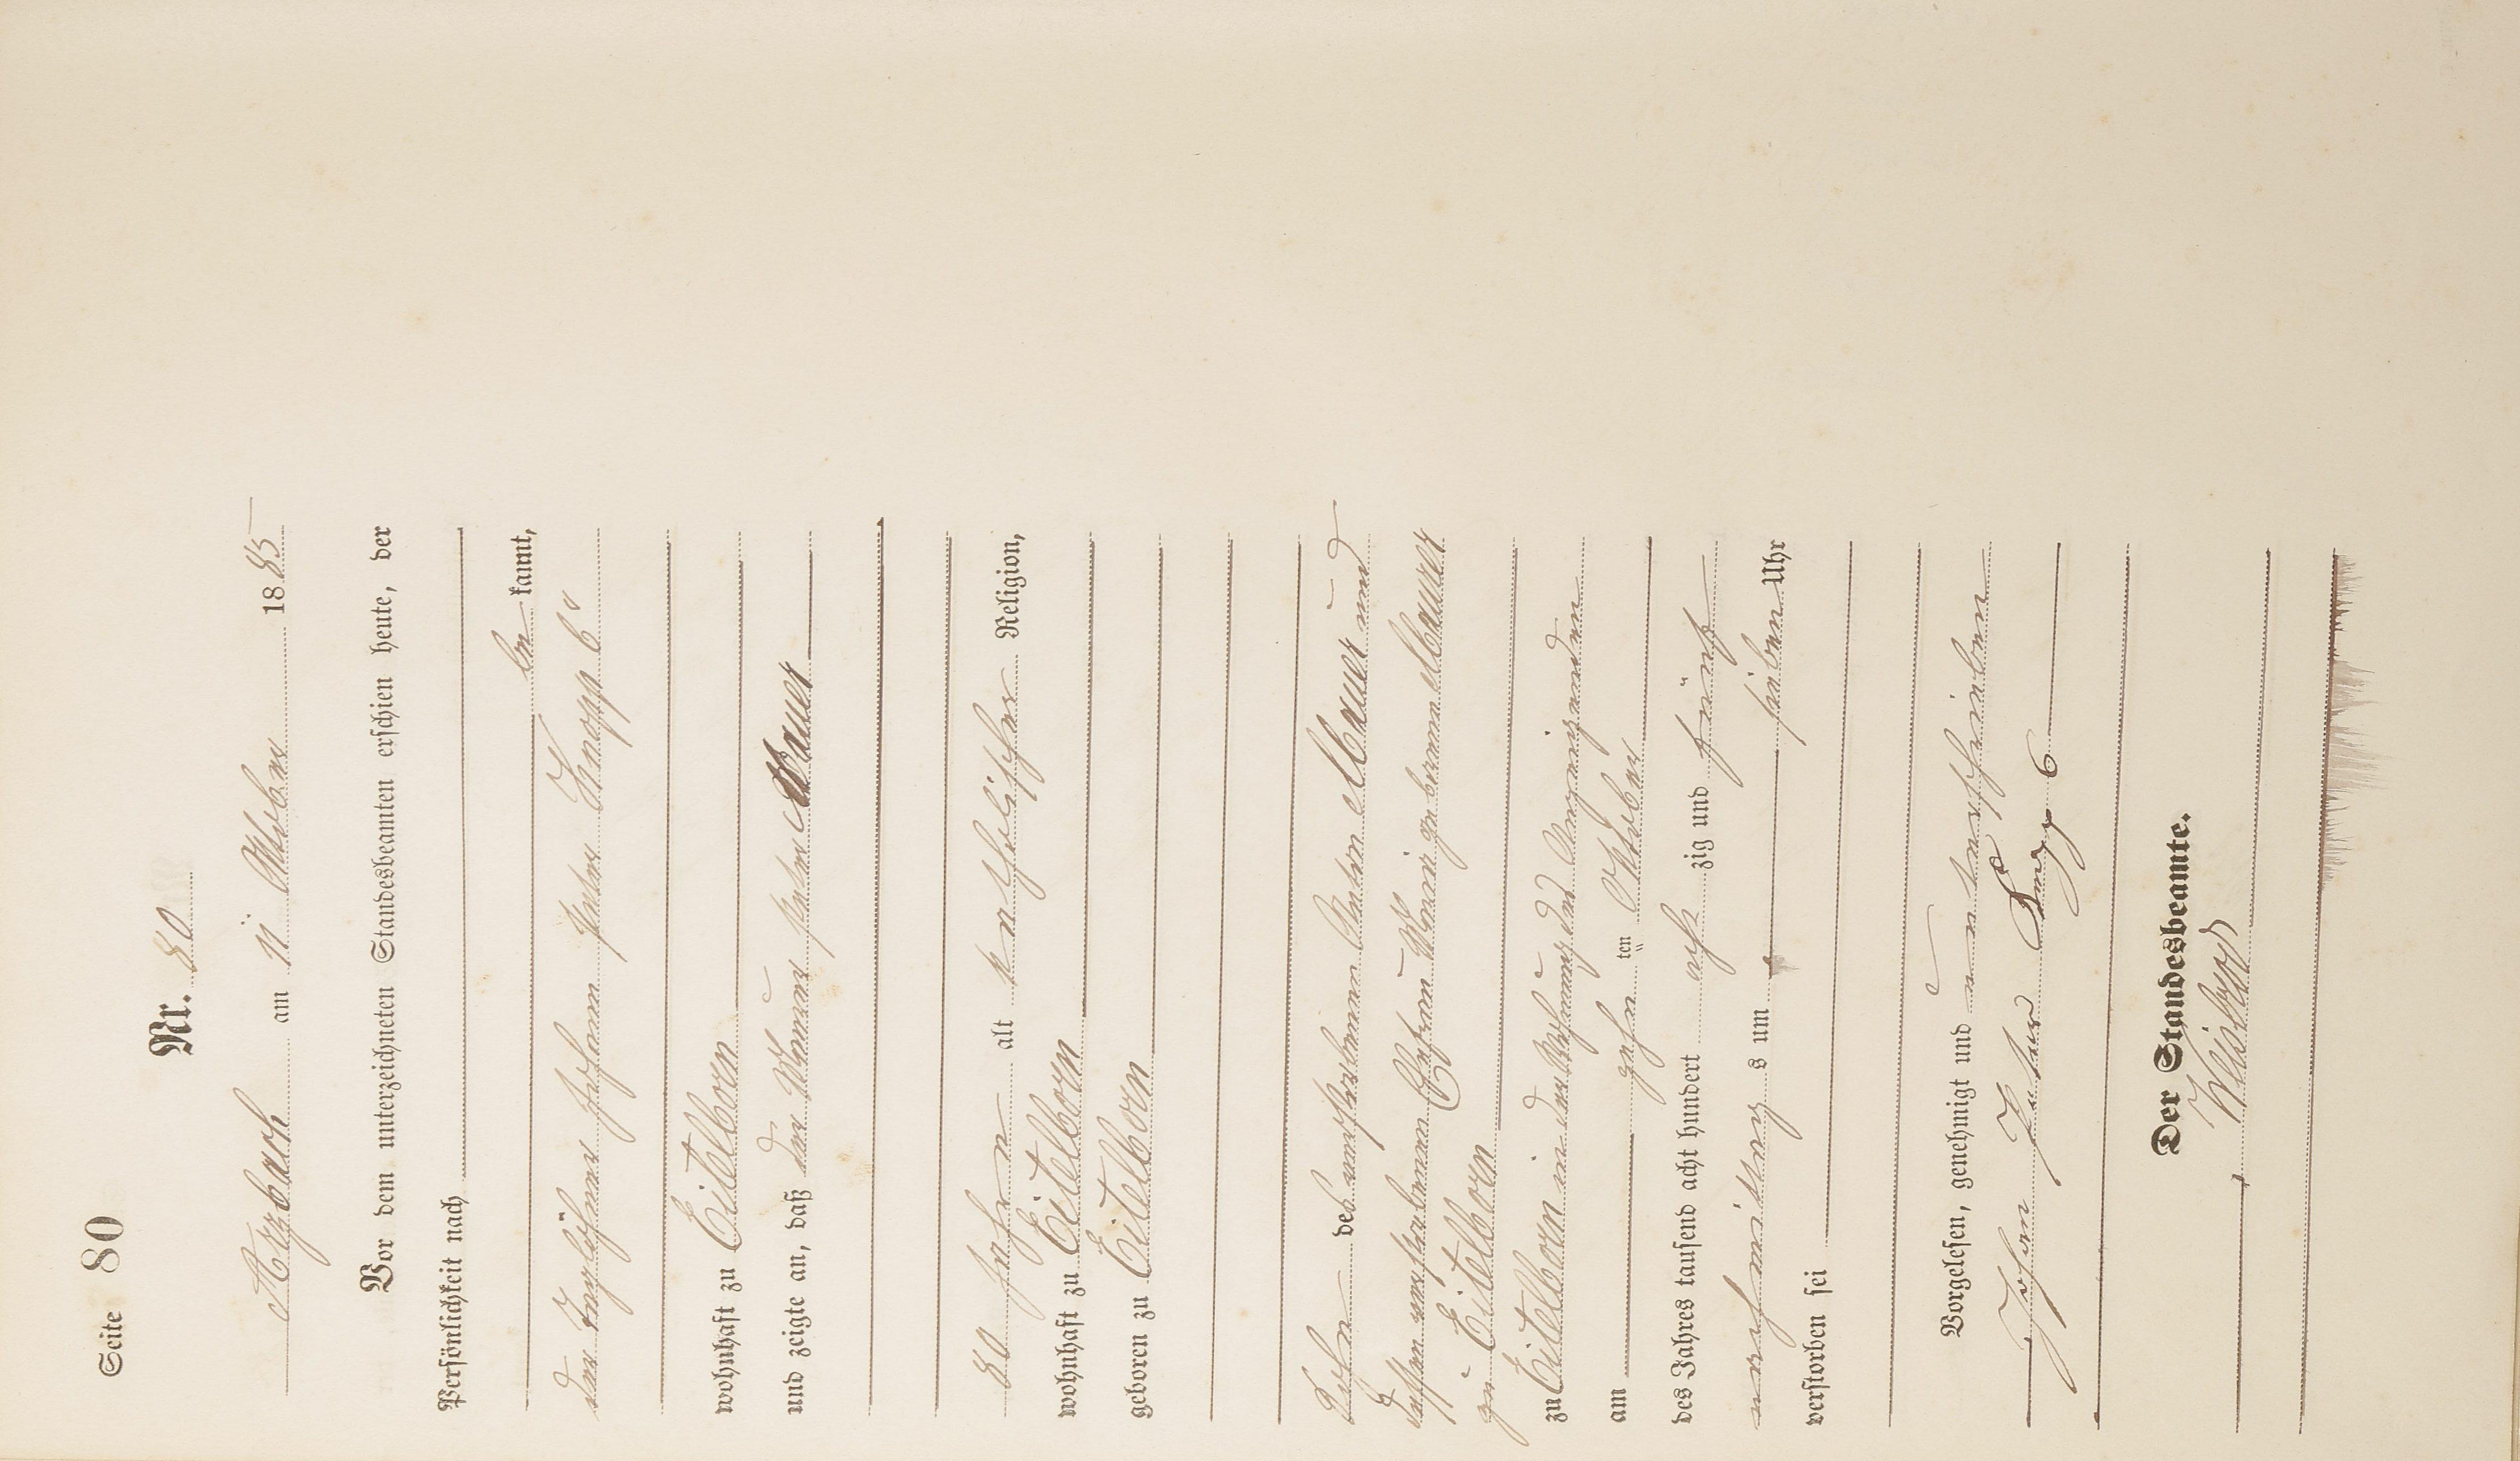 Seite 80
Nr. 80
Arzbach am 11 Oktober 1885
Vor dem unterzeichneten Standesbeamten erschien heute, der
Persönlichkeit nach
be kannt,
der Taglöhner Johann Peter Knopp 6r
wohnhaft zu Eitelborn
und zeigte an, daß der Maurer Peter Mauer
80 Jahre alt katholischer Religion,
wohnhaft zu Eitelborn
geboren zu Eitelborn
Sohn des verstorbenen Anton Mauer und
dessen verstorbenen Ehefrau Maria geborenen Mauer
zu Eitelborn
zu Eitelborn in der Wohnung des Anzeigenden
am zehn ten Oktober
des Jahres tausend acht hundert acht zig und fünf
nachmittag s um sieben Uhr
verstorben sei
Vorgelesen, genehmigt und unterschrieben
Johan Peter Knopp 6
Der Standesbeamte.